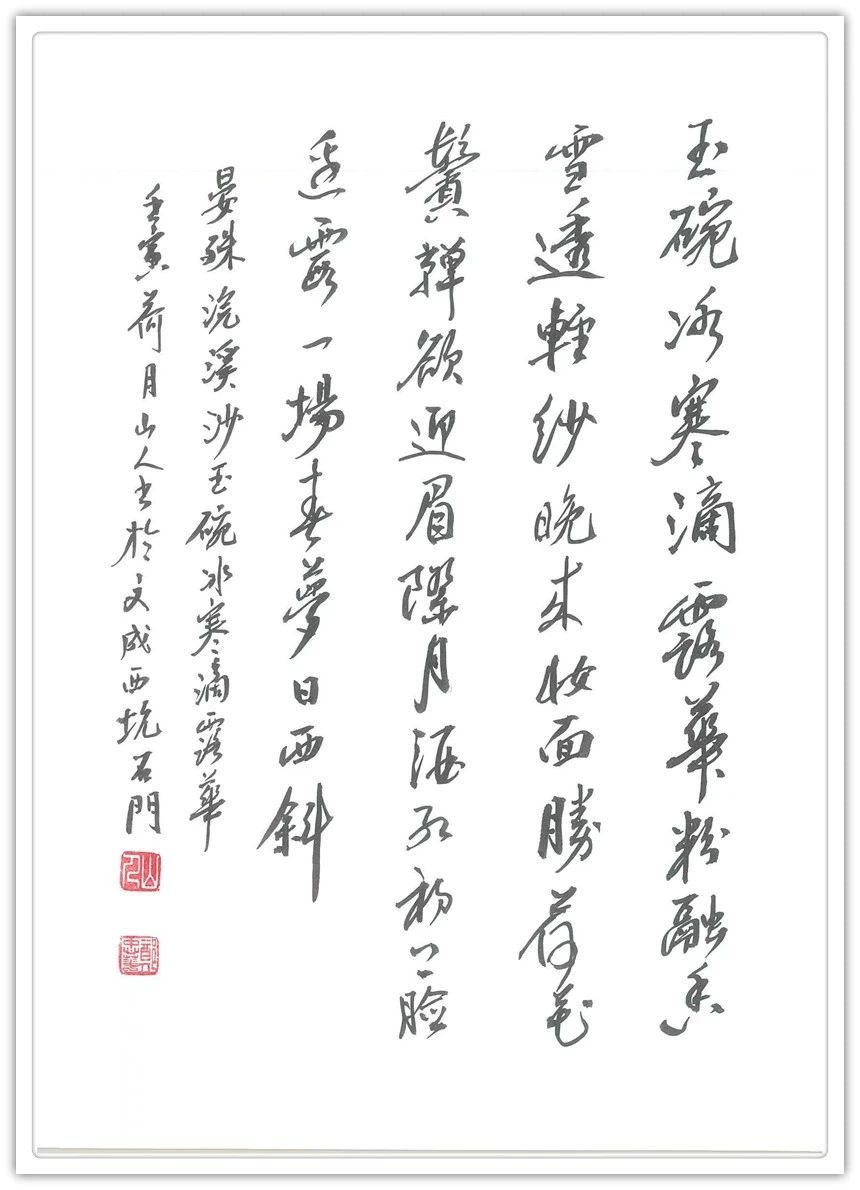 玉碗冰寒滴露華粉融香
雪透輕紗晚來妝面勝荷花
鬢嚲欲迎眉際月酒紅初上臉
邊霞一場春夢日西斜
晏殊浣溪沙玉碗冰寒滴露華
壬寅荷月山人書於文成西坑石門
山人